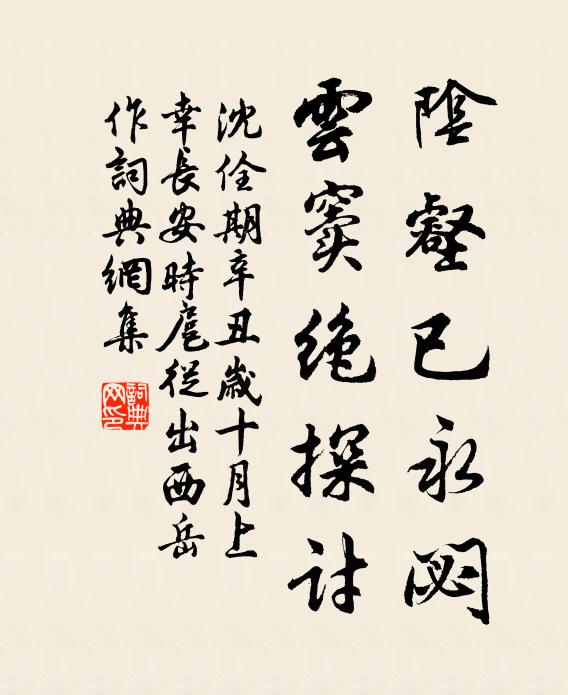 陰壑已永閟
雲竇絶探討
沈佺期辛丑歲十月上
幸長安時扈從出西岳
作詞典網集
詞典
网印